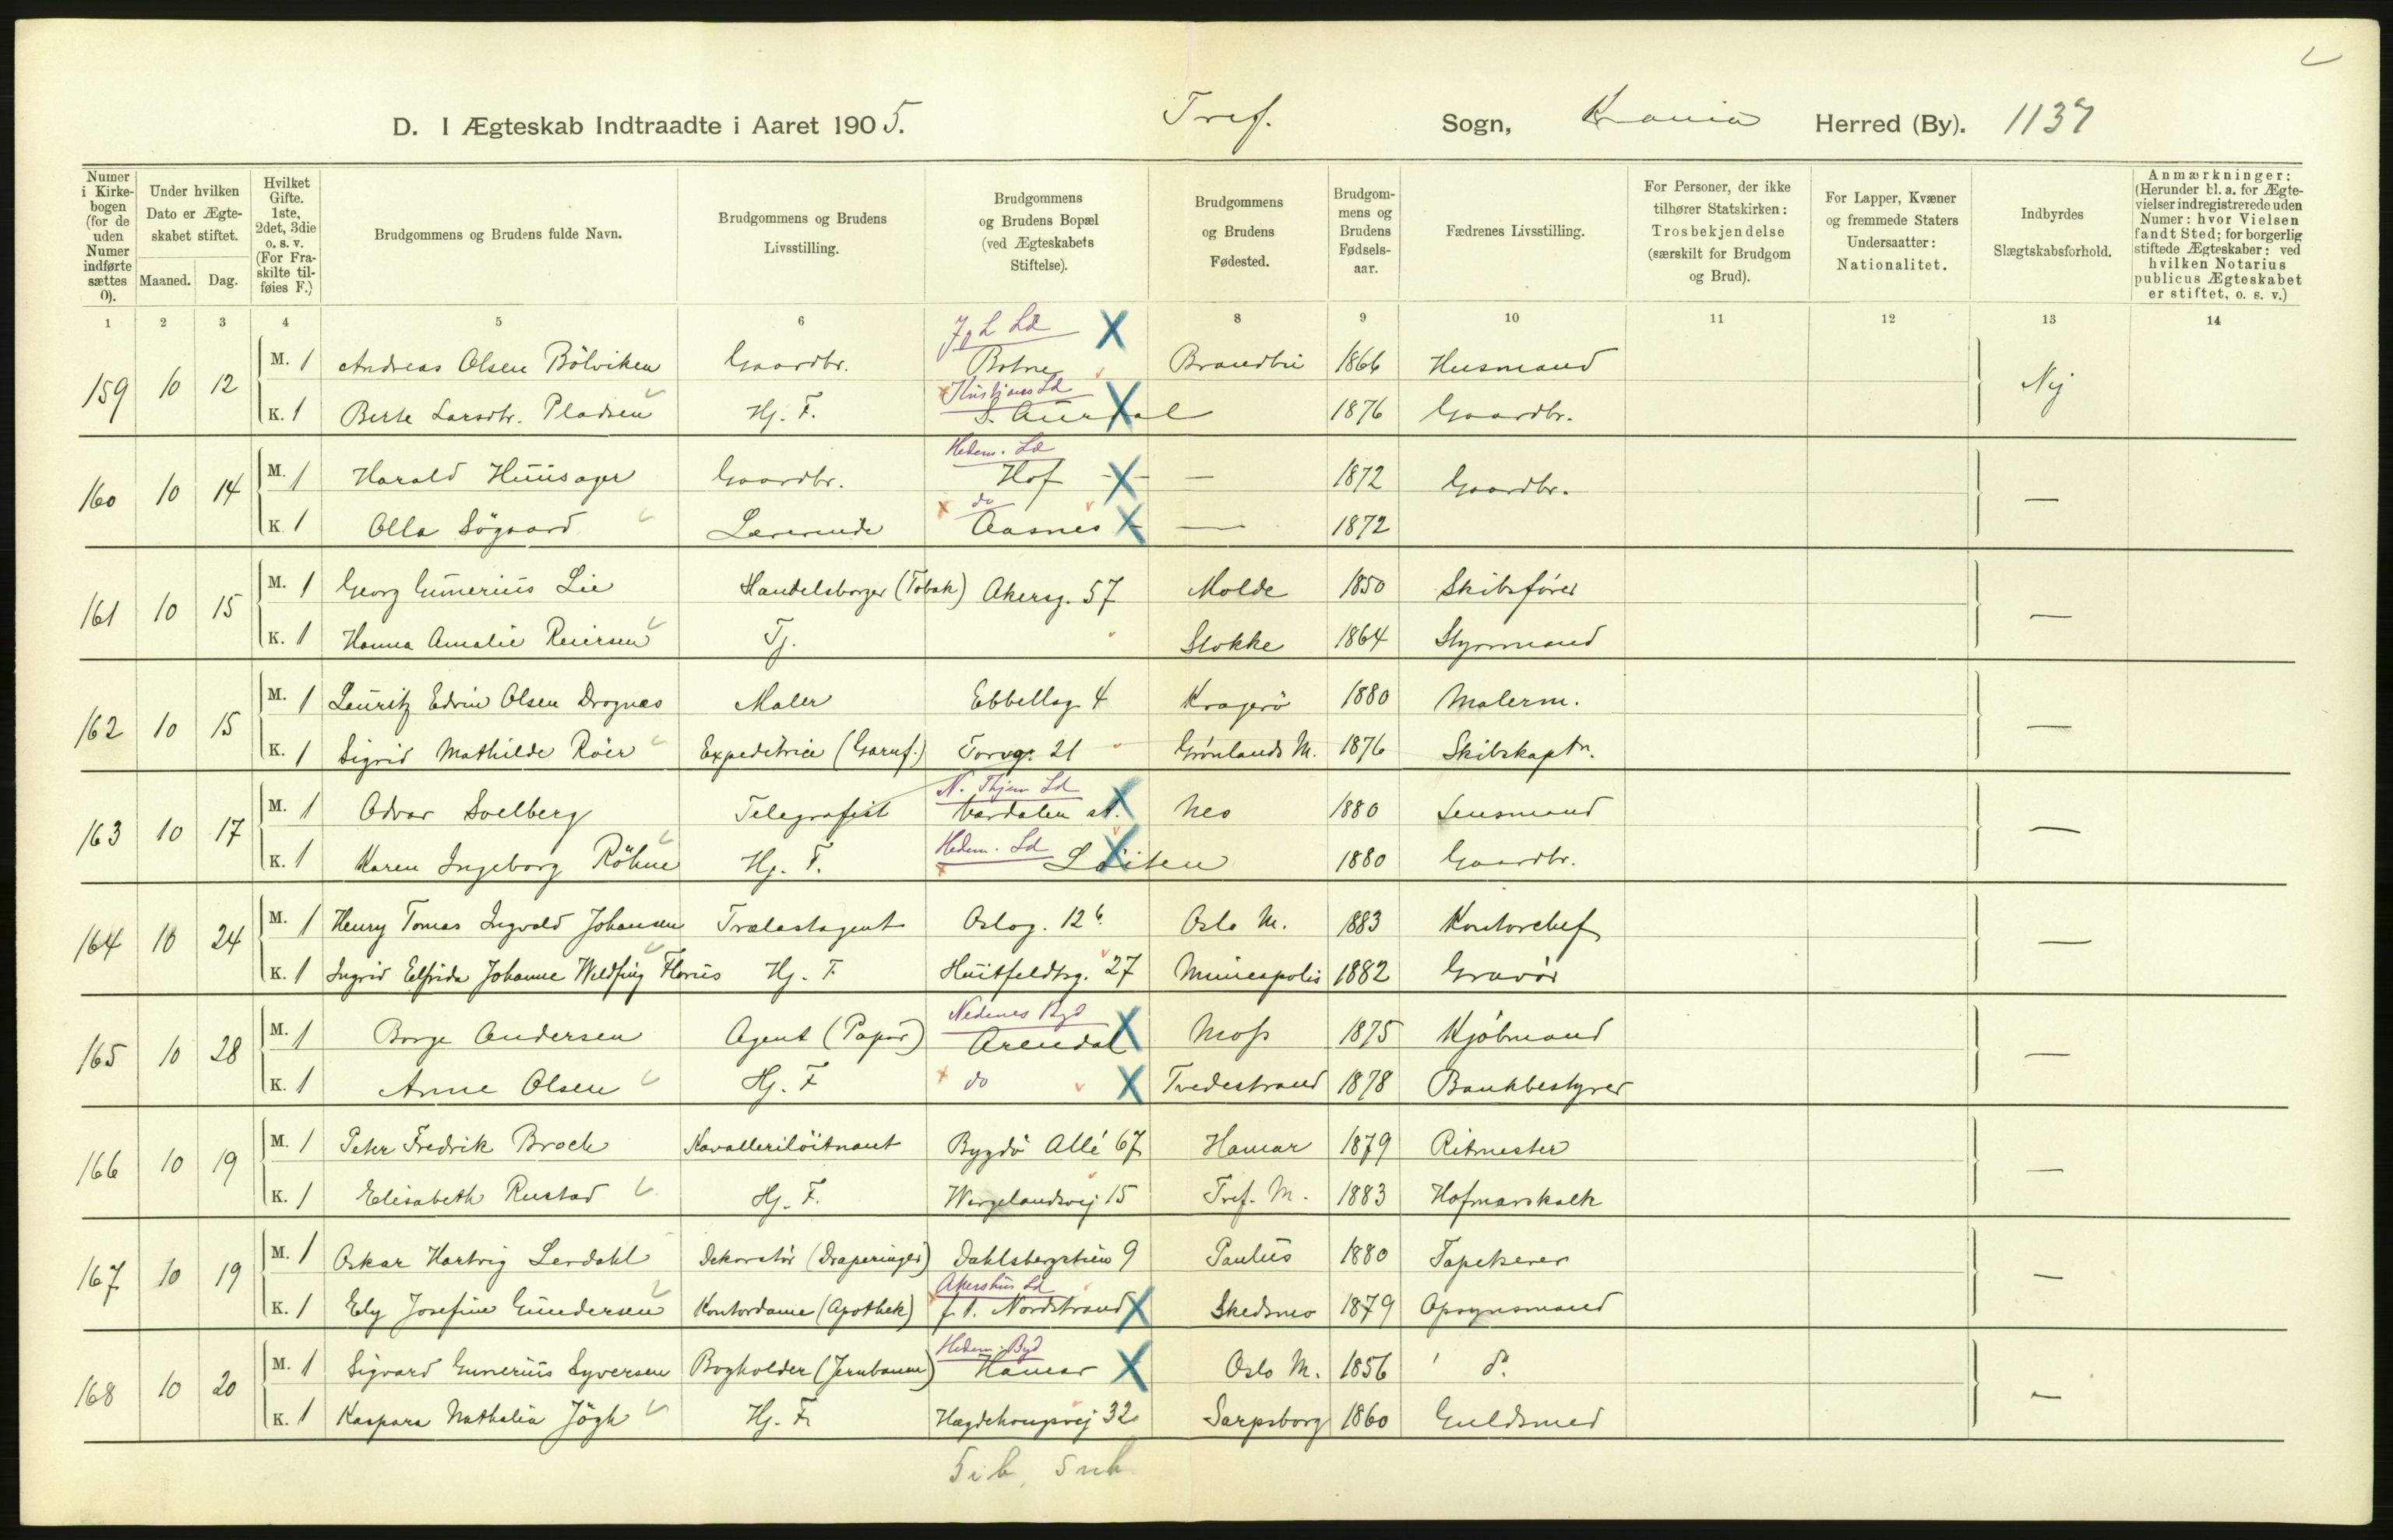 D. I Ægteskab Indtraadte i Aaret 1905. Tref. Sogn, Kania Herred (By). 1137
Numer i Kirkebogen (for de uden Numer indførte sættes 0).
Under hvilken Dato er Ægteskabet stiftet.
Maaned. Dag.
Hvilket Gifte. 1ste, 2det, 3die o. s. v. (For Fraskilte tilføies F.)
Brudgommens og Brudens fulde Navn.
Brudgommens og Brudens Livsstilling.
Brudgommens og Brudens Bopæl (ved Ægteskabets Stiftelse).
Brudgommens og Brudens Fødested.
Brudgommens og Brudens Fødselsaar.
Fædrenes Livsstilling.
For Personer, der ikke tilhører Statskirken: Trosbekjendelse (særskilt for Brudgom og Brud).
For Lapper, Kvæner og fremmede Staters Undersaatter: Nationalitet.
Indbyrdes Slægtskabsforhold.
Anmærkninger: (Herunder bl. a. for Ægtevielser indregistrerede uden Numer: hvor Vielsen fandt Sted; for borgerlig stiftede Ægteskaber: ved hvilken Notarius publicus Ægteskabet er stiftet, o. s. v.)
1 2 3 4 5 6 8 9 10 11 12 13 14
J & L Ld X
159 10 12 M. 1 Andreas Olsen Bölviken Gaardbr. Botne Brandbu 1866 Husmand Nej
Kristians Ld
K. 1 Berte Larsdtr. Pladsen Hj. F. S. Aurdal X 1876 Gaardbr.
Hedem. Ld
160 10 14 M. 1 Harald Huusager Gaardbr. Hof X — 1872 Gaardbr. —
do
K. 1 Olla Sögaard Lærerinde Aasnes X — 1872
161 10 15 M. 1 Georg Gunerius Lie Handelsborger (Tobak) Akersg. 57 Molde 1850 Skibsfører —
K. 1 Hanna Amalie Reiersen Tj. Stokke 1864 Styrmand
162 10 15 M. 1 Lauritz Edvin Olsen Dragnæs Maler Ebbellsg 4 Kragerö 1880 Malerm. —
K. 1 Sigrid Mathilde Röer Expeditrice (Garnf.) Torvg. 21 Grönlands M. 1876 Skibskaptn.
N. Thjem Ld
163 10 17 M. 1 Odvar Solberg Telegrafist Værdalen st. X Nes 1880 Lensmand —
Hedem. Ld
K. 1 Karen Ingeborg Röhne Hj. F. Löiten X 1880 Gaardbr.
164 10 24 M. 1 Henry Tomas Ingvald Johansen Trælastagent Oslog. 12 b Oslo M. 1883 Kontorchef —
K. 1 Ingrid Elfrida Johanne Hj. F. Huitfeldtsg. 27 Mineapolis 1882 Gravör
Nedenes Byd
165 10 28 M. 1 Borge Andersen Agent (Papir) Arendal X Moss 1875 Kjöbmand —
K. 1 Anne Olsen Hj. F do X Tvedestrand 1878 Bankbestyrer
166 10 19 M. 1 Peter Fredrik Broch Kavallerilöitnant Bygdö Allé 67 Hamar 1879 Ritmester —
K. 1 Elisabeth Rustad Hj. F. Wergelandsvej 15 Tref. M. 1883 Hofmarskalk
167 10 19 M. 1 Oskar Hartvig Lerdahl Dekoratör (Draperinger) Dahlsbergstien 9 Paulus 1880 Tapetserer —
Akershus Ld
K. 1 Ely Josefine Gundersen Kontordame (Apothek) f. t. Nordstrand X Skedsmo 1879 Opsynsmand
Hedem. Byd
168 10 20 M. 1 Sigvard Gunerius Syversen Bogholder (Jernbanen) Hamar X Oslo M. 1856 do. —
K. 1 Kaspara Nathalia Jögh Hj. F. Hægdehougsvej 32 Sarpsborg 1860 Guldsmed
5 ib, 5 ub